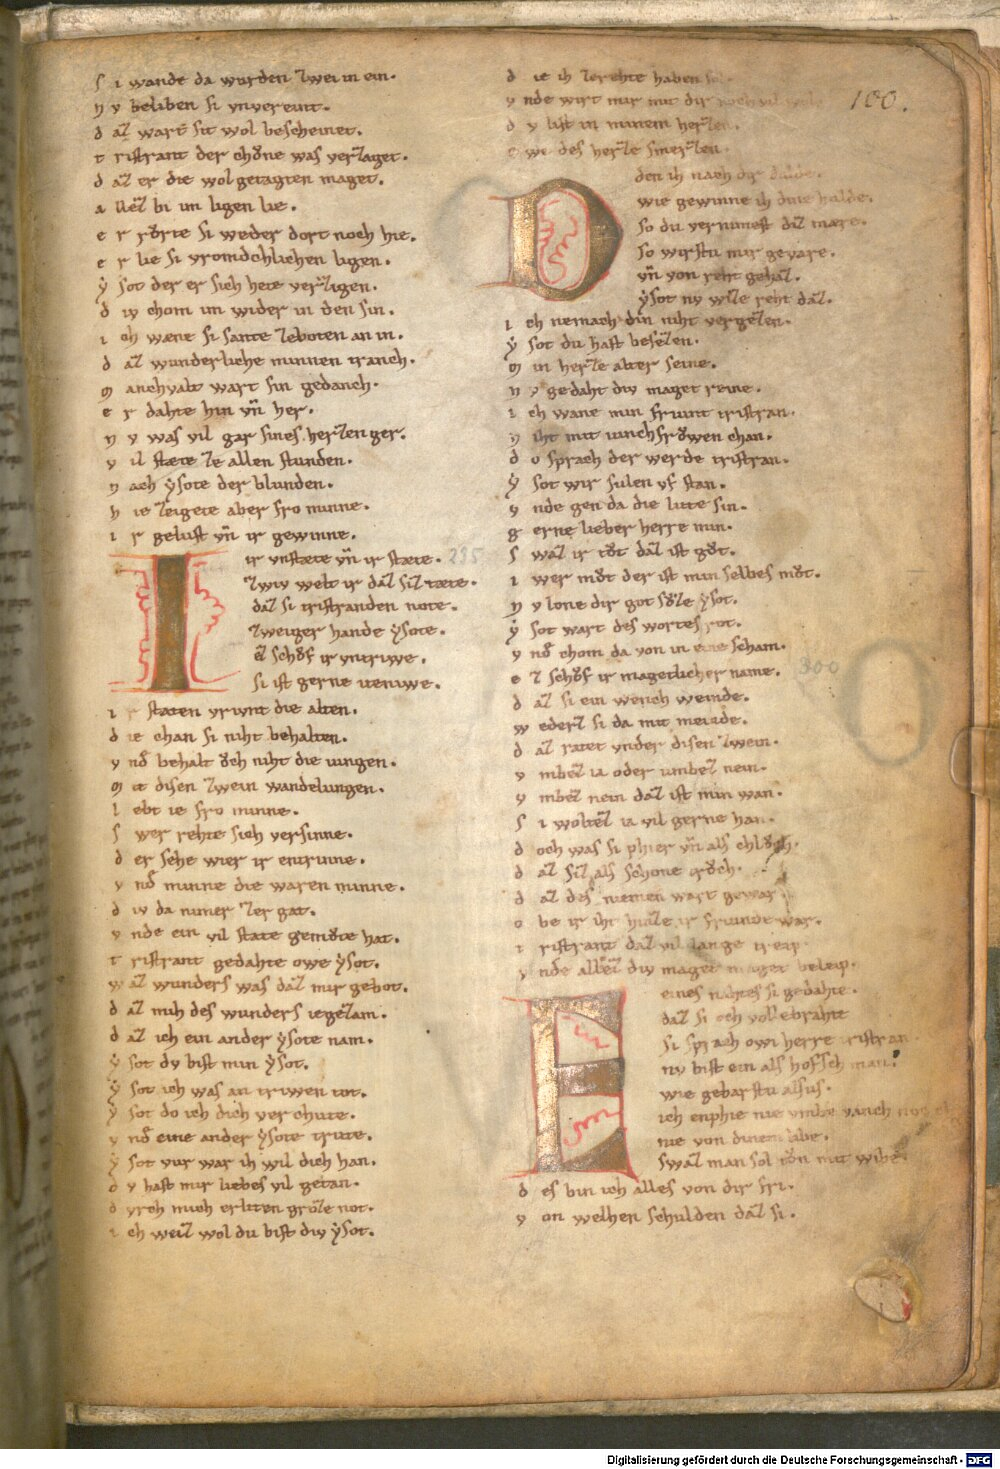 S i wande da wurden zwei in ein.
v v beliben si vnvereint.
d az wart sit wol bescheinet.
t ristrant der chŏne was verzaget.
d az er die wol getagten maget.
a llez bi im ligen lie.
e r rŏrte si weder dort noch hie.
e r lie si vromdchlichen ligen.
ẏ sot der er sich hete verzigen.
d iv chom im wider in den sin.
i ch wæne si sante zeboten an in.
d az wunderliche minnen tranch.
m anchvalt wart sin gedanch.
e r dahte hin vñ her.
n v was vil gar sines herzen ger.
v il stæte ze allen stunden.
n ach ẏsote der blunden.
h ie zeigete aber fro minne.
i r gelust vñ ir gewinne.
I ir vnstæte vñ ir stæte.
zwiv welt ir daz siz tæte.
daz si tristranden note.
zweiger hande ẏsote.
ez schŏf ir vntriwe.
si ist gerne iteniwe.
i r stæten vriunt die alten.
d ie chan si niht behalten.
v nd behalt ŏch niht die iungen.
m it disen zwein wandelungen.
l ebt ie fro minne.
s wer rehte sich versinne.
d er sehe wier ir entrinne.
v nd minne die waren minne.
d iv da nimer zer gat.
v nde ein vil state gemŏte hat.
t ristrant gedahte owe ẏsot.
w az wunders was daz mir gebot.
d az mih des wunders iegezam.
d az ich ein ander ẏsote nam.
ẏ sot dv bist min ẏsot.
ẏ sot ich was an triwen tot.
ẏ sot do ich dich verchute.
v nd eine ander ẏsote trute.
ẏ sot vur war ih wil dich han.
d v hast mir liebes vil getan.
d vrch mich erliten groze not.
i ch weiz wol du bist div ẏsot.
100.
d ie ih zerehte haben
v nde wirt mir mit dir
d v list in minem herzen.
e we des herze smerzen.
D den ih nach dir dulde.
wie gewinne ih dine hulde.
so du vernimest diz mære.
so wirstu mir gevare.
vñ von reht gehaz.
ẏsot nv wize reht daz.
i ch nemach din niht vergezen.
ẏ sot du hast besezen.
m in herze alter seine.
n v gedaht div maget reine.
i ch wane min friunt tristran.
n iht mit iunchfrŏwen chan.
d o sprach der werde tristran.
ẏ sot wir sulen vf stan.
v nde gen da die lute sin.
g erne lieber herre min.
s waz ir tŏt daz ist gŏt.
i wer mŏt der ist min selbes mŏt.
n v lone dir got sŏze ẏsot.
ẏ sot wart des wortes rot.
v nd chom da von in eine scham.
e z schŏf ir magetlicher name.
d az si ein wench weinde.
w ederz si da mit meinde.
d az ratet vnder disen zwein.
v mbez ia oder umbez nein.
v mbez nein daz ist min wan.
s i woltez ia vil gerne han.
d och was si phier vñ als chlŏch.
d az siz als schone trŏch.
d az des niemen wart gewar.
o be ir iht hinze ir friunde war.
t ristrant daz vil lange treip.
v nde allez div maget maget beleip.
E eines nahtes si gedahte.
daz si och vollebrahte
si sprach owi herre tristran
nv bist ein als hofsch man.
wie gebarstu alsus.
ich enphie nie vmbe vanch
nie von dinem libe.
swaz man sol tŏn mit wibe.
d es bin ich alles von dir fri.
v on welhen schulden daz si.
Digitalisierung gefördert durch die Deutsche Forschungsgemeinschaft - DFG